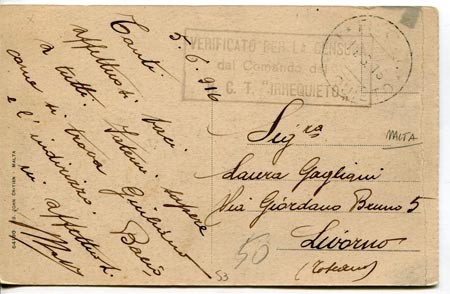 5.6.916
Tanti
affettuosi baci
a tutti. Fatemi sapere
come si trova Giuliano
e l'indirizzo. Baci
affettuosi
VERIFICATO PER LA CENSURA
dal Comando del
C. T. "IRREQUIETO"
MALTA
Sig.ra
Laura Gagliani
Via Giordano Bruno 5
Livorno
(Toscana)
50
53